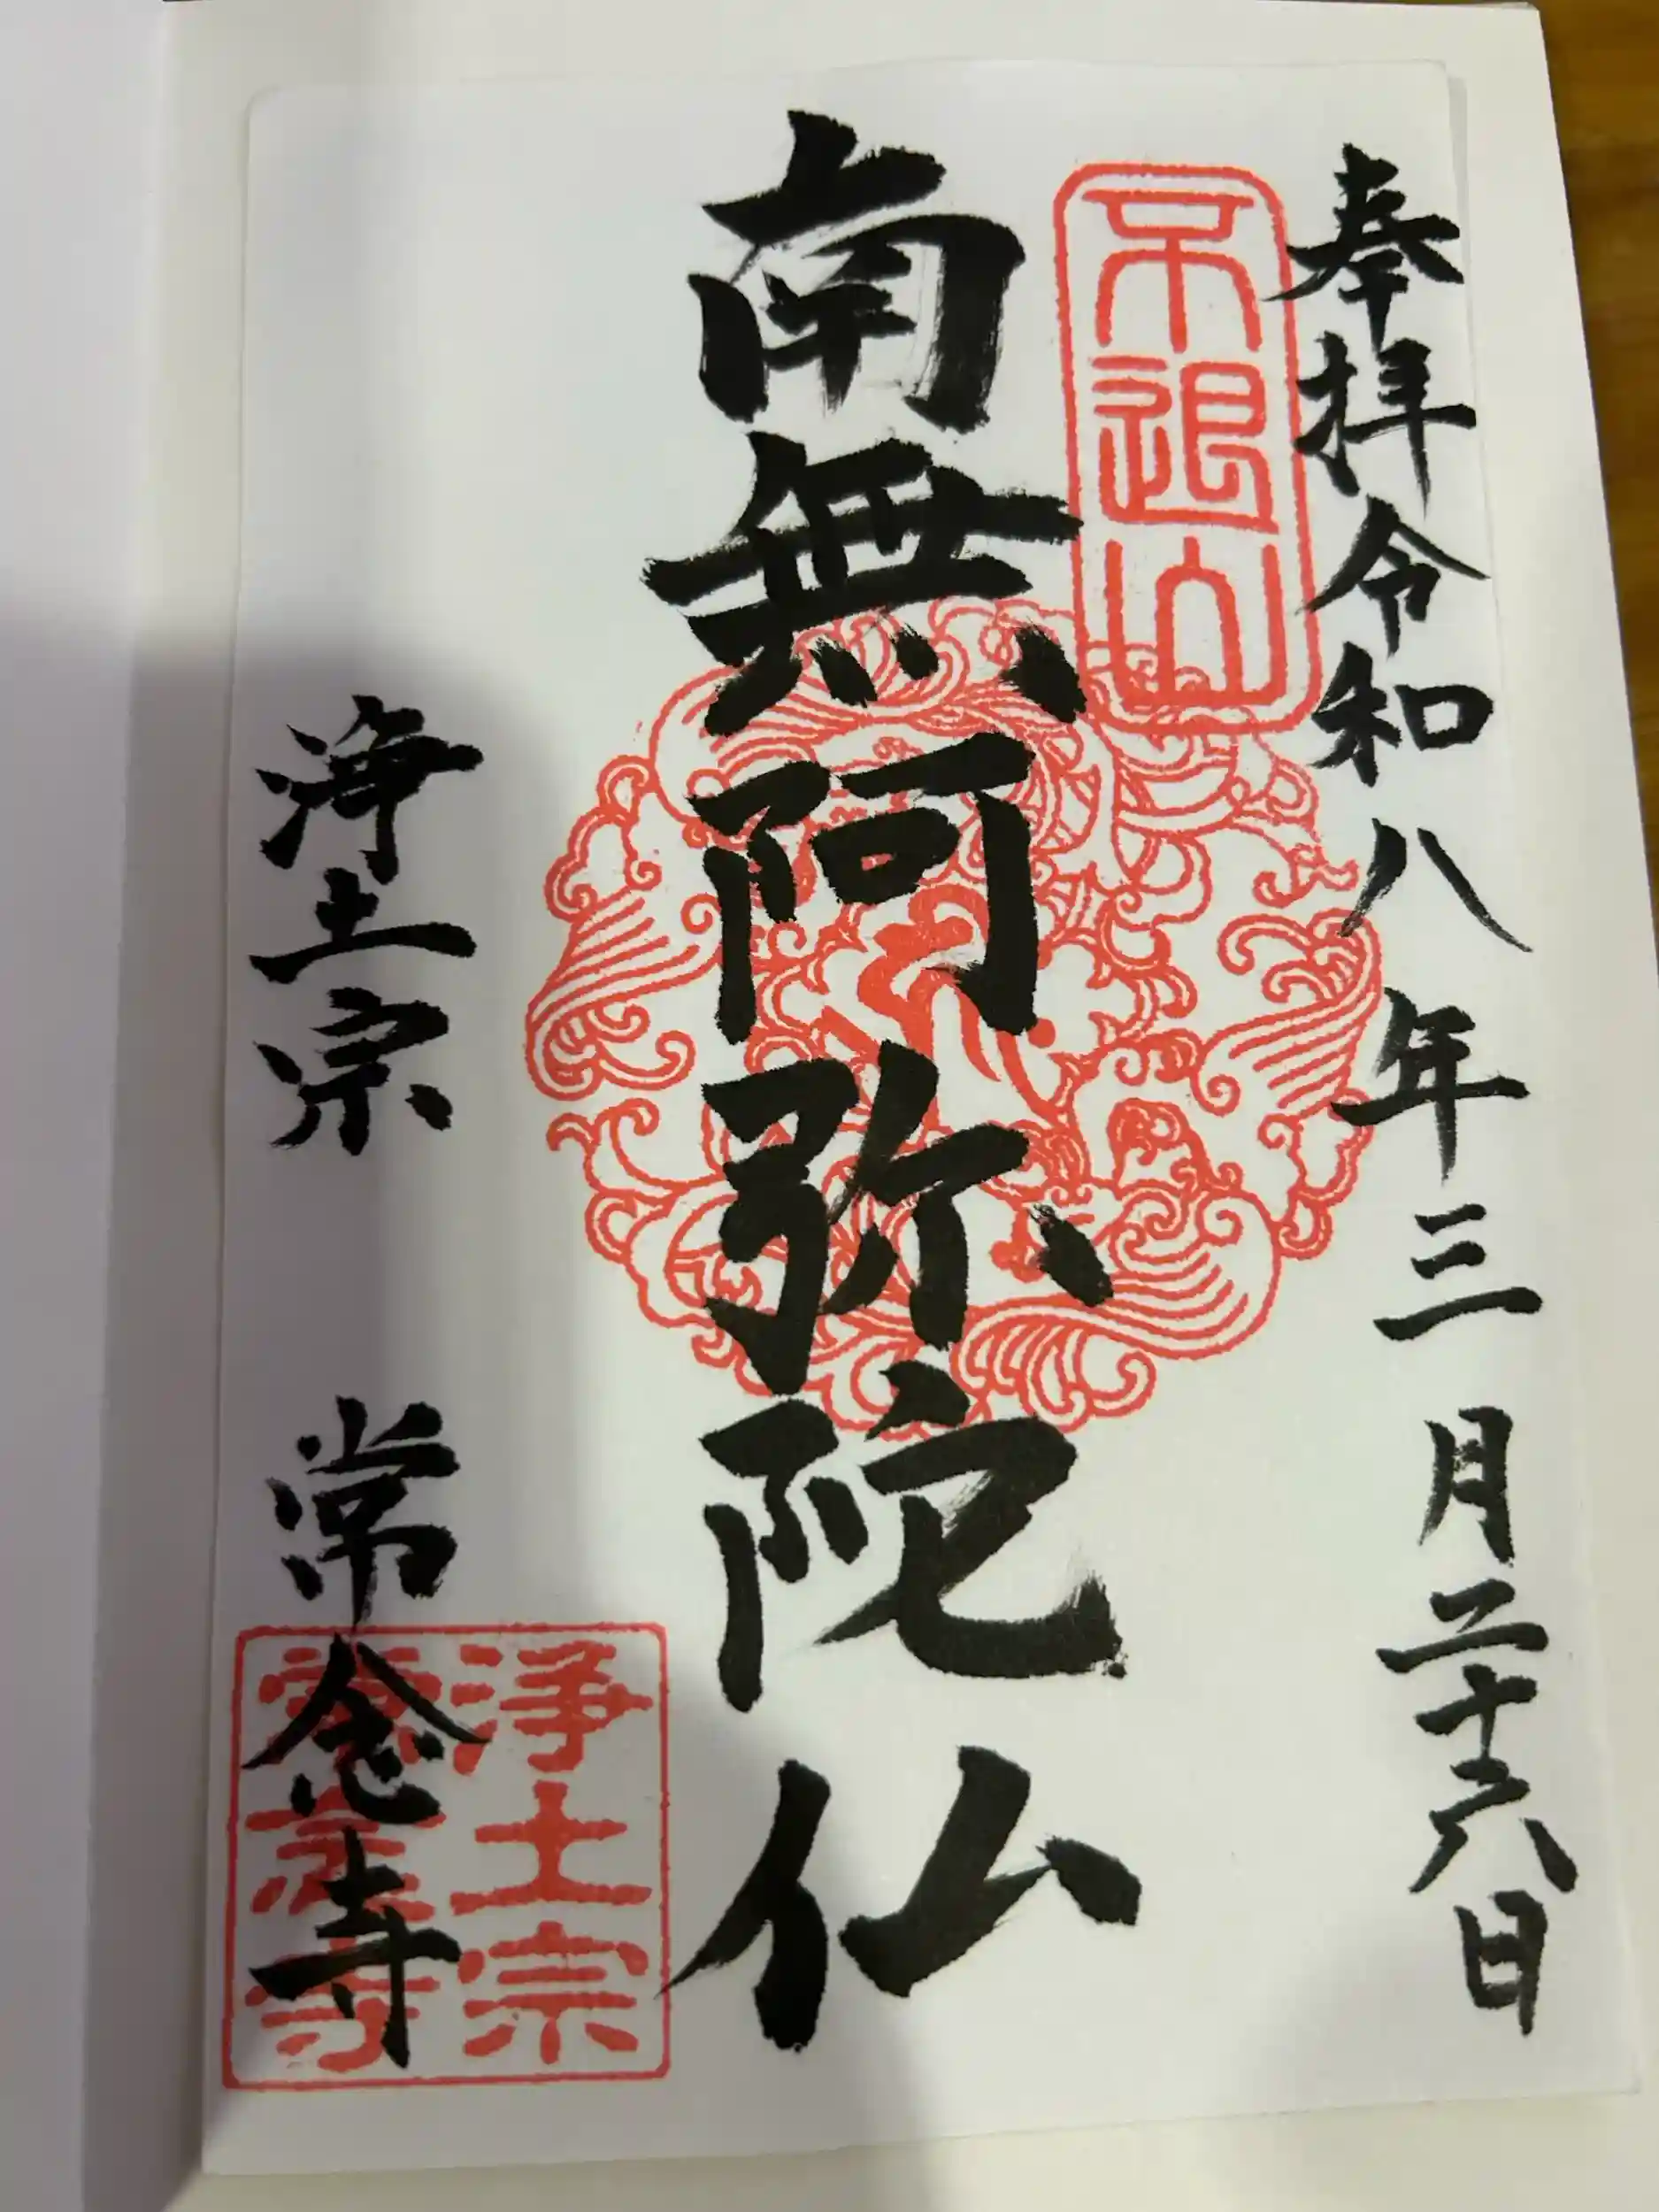 奉拝令和八年三月二十六日
不退山
南無阿弥陀仏
浄土宗 常念寺
浄土宗
常念寺